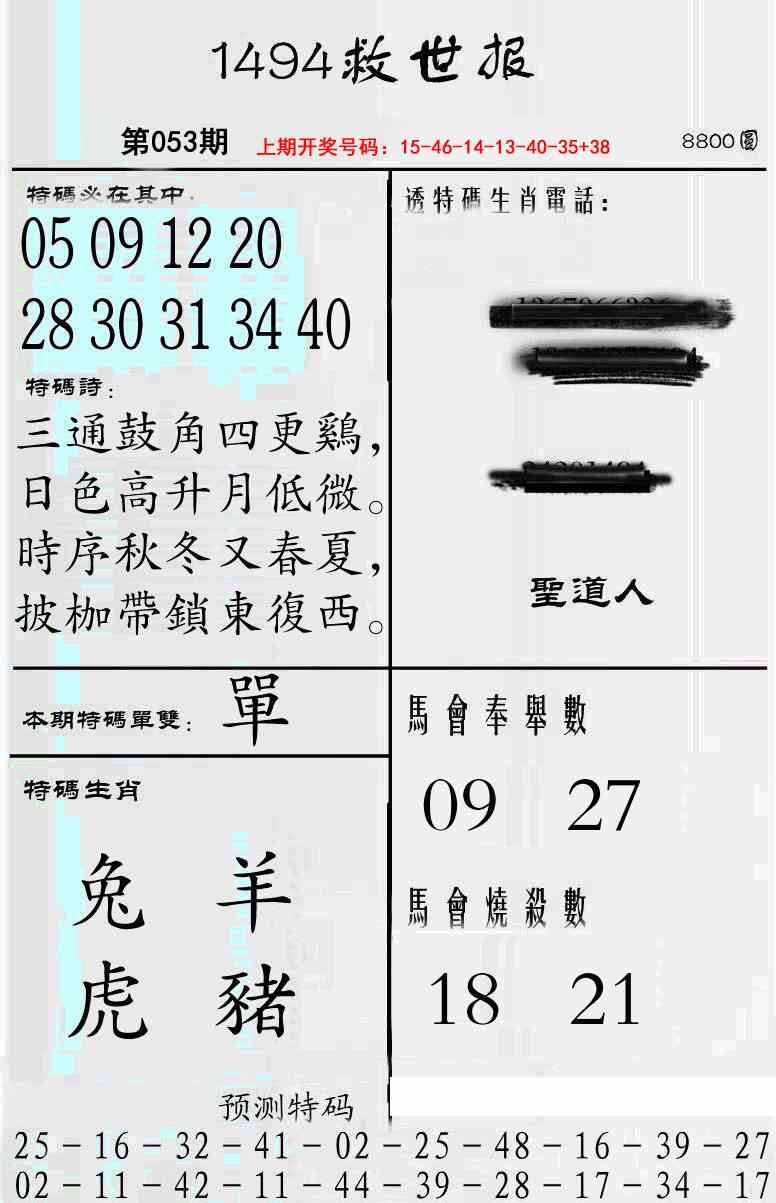 1494救世报
第053期
上期开奖号码：15-46-14-13-40-35+38
8800圓
特碼必在其中：
05 09 12 20
28 30 31 34 40
特碼詩：
三通鼓角四更鷄，
日色高升月低微。
時序秋冬又春夏，
披枷帶鎖東復西。
透特碼生肖電話：
聖道人
本期特碼單雙：單
特碼生肖
兔 羊
虎 豬
馬會奉舉數
09 27
馬會燒殺數
18 21
预测特码
25－16－32－41－02－25－48－16－39－27
02－11－42－11－44－39－28－17－34－17